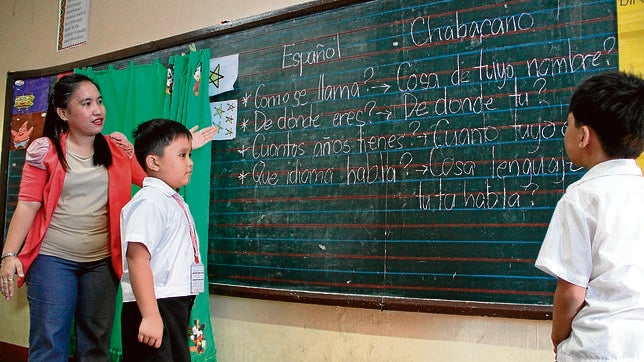 Español Chabacano
* Como se llama? → Cosa de tuyo nombre?
* De donde eres? → De donde tu?
* Cuantos años tienes? → Cuanto tuyo
* Que idioma habla? → Cosa lenguaje
tu ta habla?